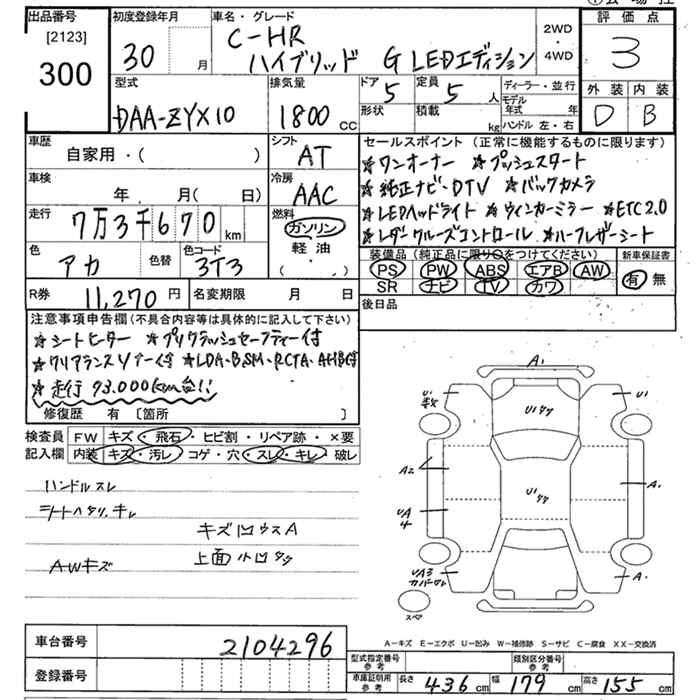 出品番号 [2123] 300
初度登録年月 30 月
車名・グレード C-HR ハイブリッド G LEDエディション
2WD・4WD
評価点 3
外装 D 内装 B
型式 DAA-ZYX10
排気量 1800 cc
ドア 5 形状
定員 5 人 積載 kg
ディーラー・並行
モデル年式 年
ハンドル 左・右
車歴 自家用・( )
シフト AT
車検 年 月(日)
冷房 AAC
走行 7万3千670 km
燃料 ガソリン 軽油 ・( )
色 アカ 色替 色コード 3T3
R券 11,270円 名変期限 月 日
セールスポイント (正常に機能するものに限ります)
★ワンオーナー ★プッシュスタート
★純正ナビ・DTV ★バックカメラ
★LEDヘッドライト ★ウィンカーミラー ★ETC2.0
★レダークルーズコントロール ★ハーフレザーシート
装備品 (純正品に限り○をつけてください) 新車保証書
PS PW ABS エアB AW 有 無
SR ナビ TV カワ
後日品
注意事項申告欄 (不具合内容等は具体的に記入して下さい)
★シートヒーター ★プリクラッシュセーフティー付
★クリアランスソナー付 ★LDA・BSM・RCTA・AHB付
★走行 73.000km台!!
修復歴 有 [箇所 ]
検査員 FW キズ・飛石・ヒビ割・リペア跡・×要
記入欄 内装 キズ・汚レ・コゲ・穴・スレ・キレ・破レ
ハンドルスレ
シートヘタリ、キレ
キズ凹ウスA
AWキズ
上面小凹タタ
A1
U1 数
U1
U1 タタ
A2
U1 タタ
A1
UA 4
UA3 カバーワレ
A1
スペア
A-キズ E-エクボ U-凹み W-補修跡 S-サビ C-腐食 XX-交換済
車台番号 2104296
登録番号
型式指定番号 参考 類別区分番号 参考
車庫証明用 参考 長さ 436 cm 幅 179 cm 高さ 155 cm